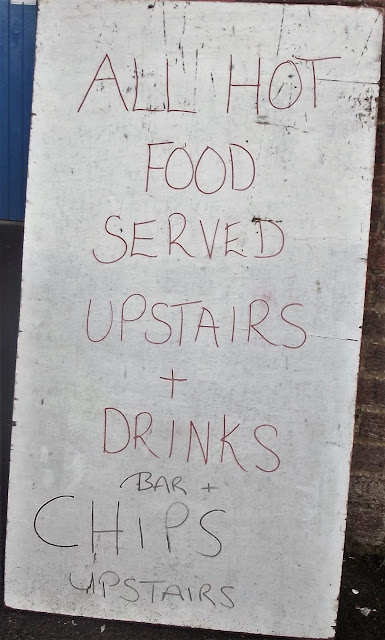 ALL HOT
FOOD
SERVED
UPSTAIRS
+
DRINKS
BAR +
CHIPS
UPSTAIRS